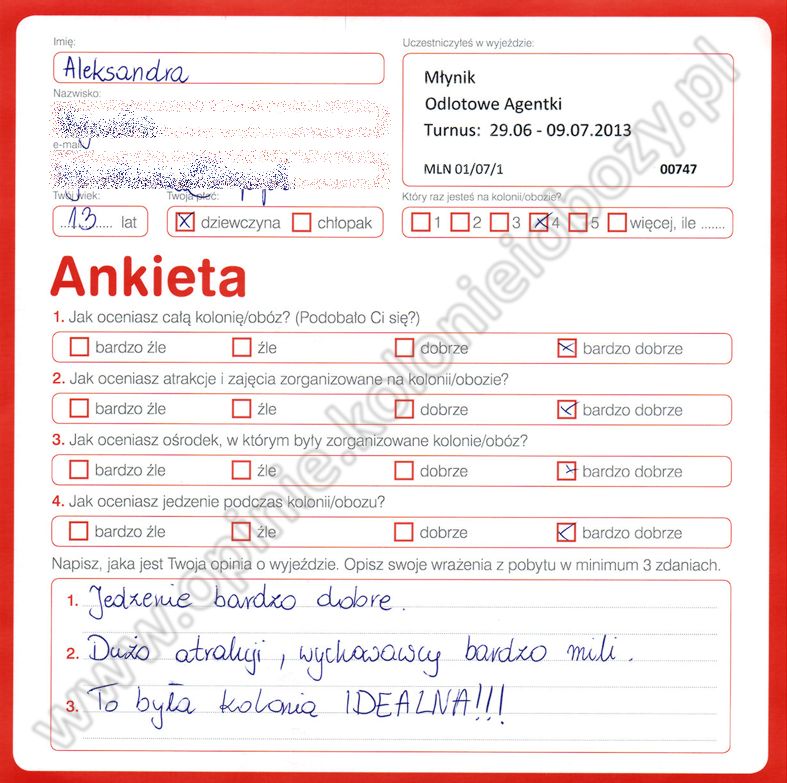 Imię:
Uczestniczyłeś w wyjeździe:
Aleksandra
Młynik
Odlotowe Agentki
Turnus: 29.06 - 09.07.2013
MLN 01/07/1 00747
Nazwisko:
e-mail:
Twój wiek: Twoja płeć: Który raz jesteś na kolonii/obozie?
13 lat dziewczyna chłopak 1 2 3 4 5 więcej, ile .......
Ankieta
1. Jak oceniasz całą kolonię/obóz? (Podobało Ci się?)
bardzo źle źle dobrze bardzo dobrze
2. Jak oceniasz atrakcje i zajęcia zorganizowane na kolonii/obozie?
bardzo źle źle dobrze bardzo dobrze
3. Jak oceniasz ośrodek, w którym były zorganizowane kolonie/obóz?
bardzo źle źle dobrze bardzo dobrze
4. Jak oceniasz jedzenie podczas kolonii/obozu?
bardzo źle źle dobrze bardzo dobrze
Napisz, jaka jest Twoja opinia o wyjeździe. Opisz swoje wrażenia z pobytu w minimum 3 zdaniach.
1. Jedzenie bardzo dobre.
2. Dużo atrakcji, wychowawcy bardzo mili.
3. To była kolonia IDEALNA!!!
www.opinie.kolonieiobozy.pl